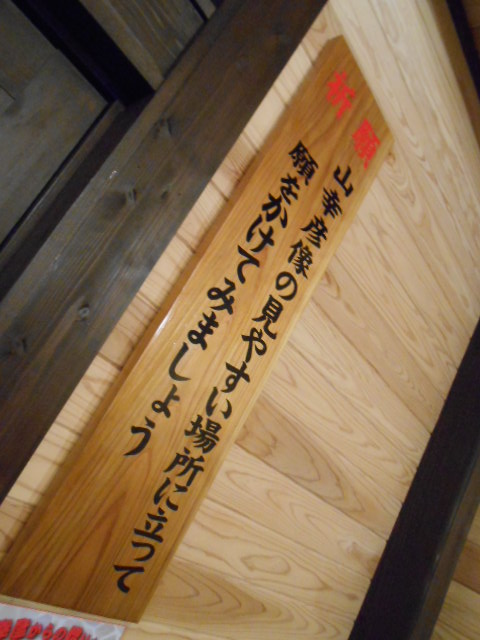 祈願
山幸彦像の見やすい場所に立って
願をかけてみましょう